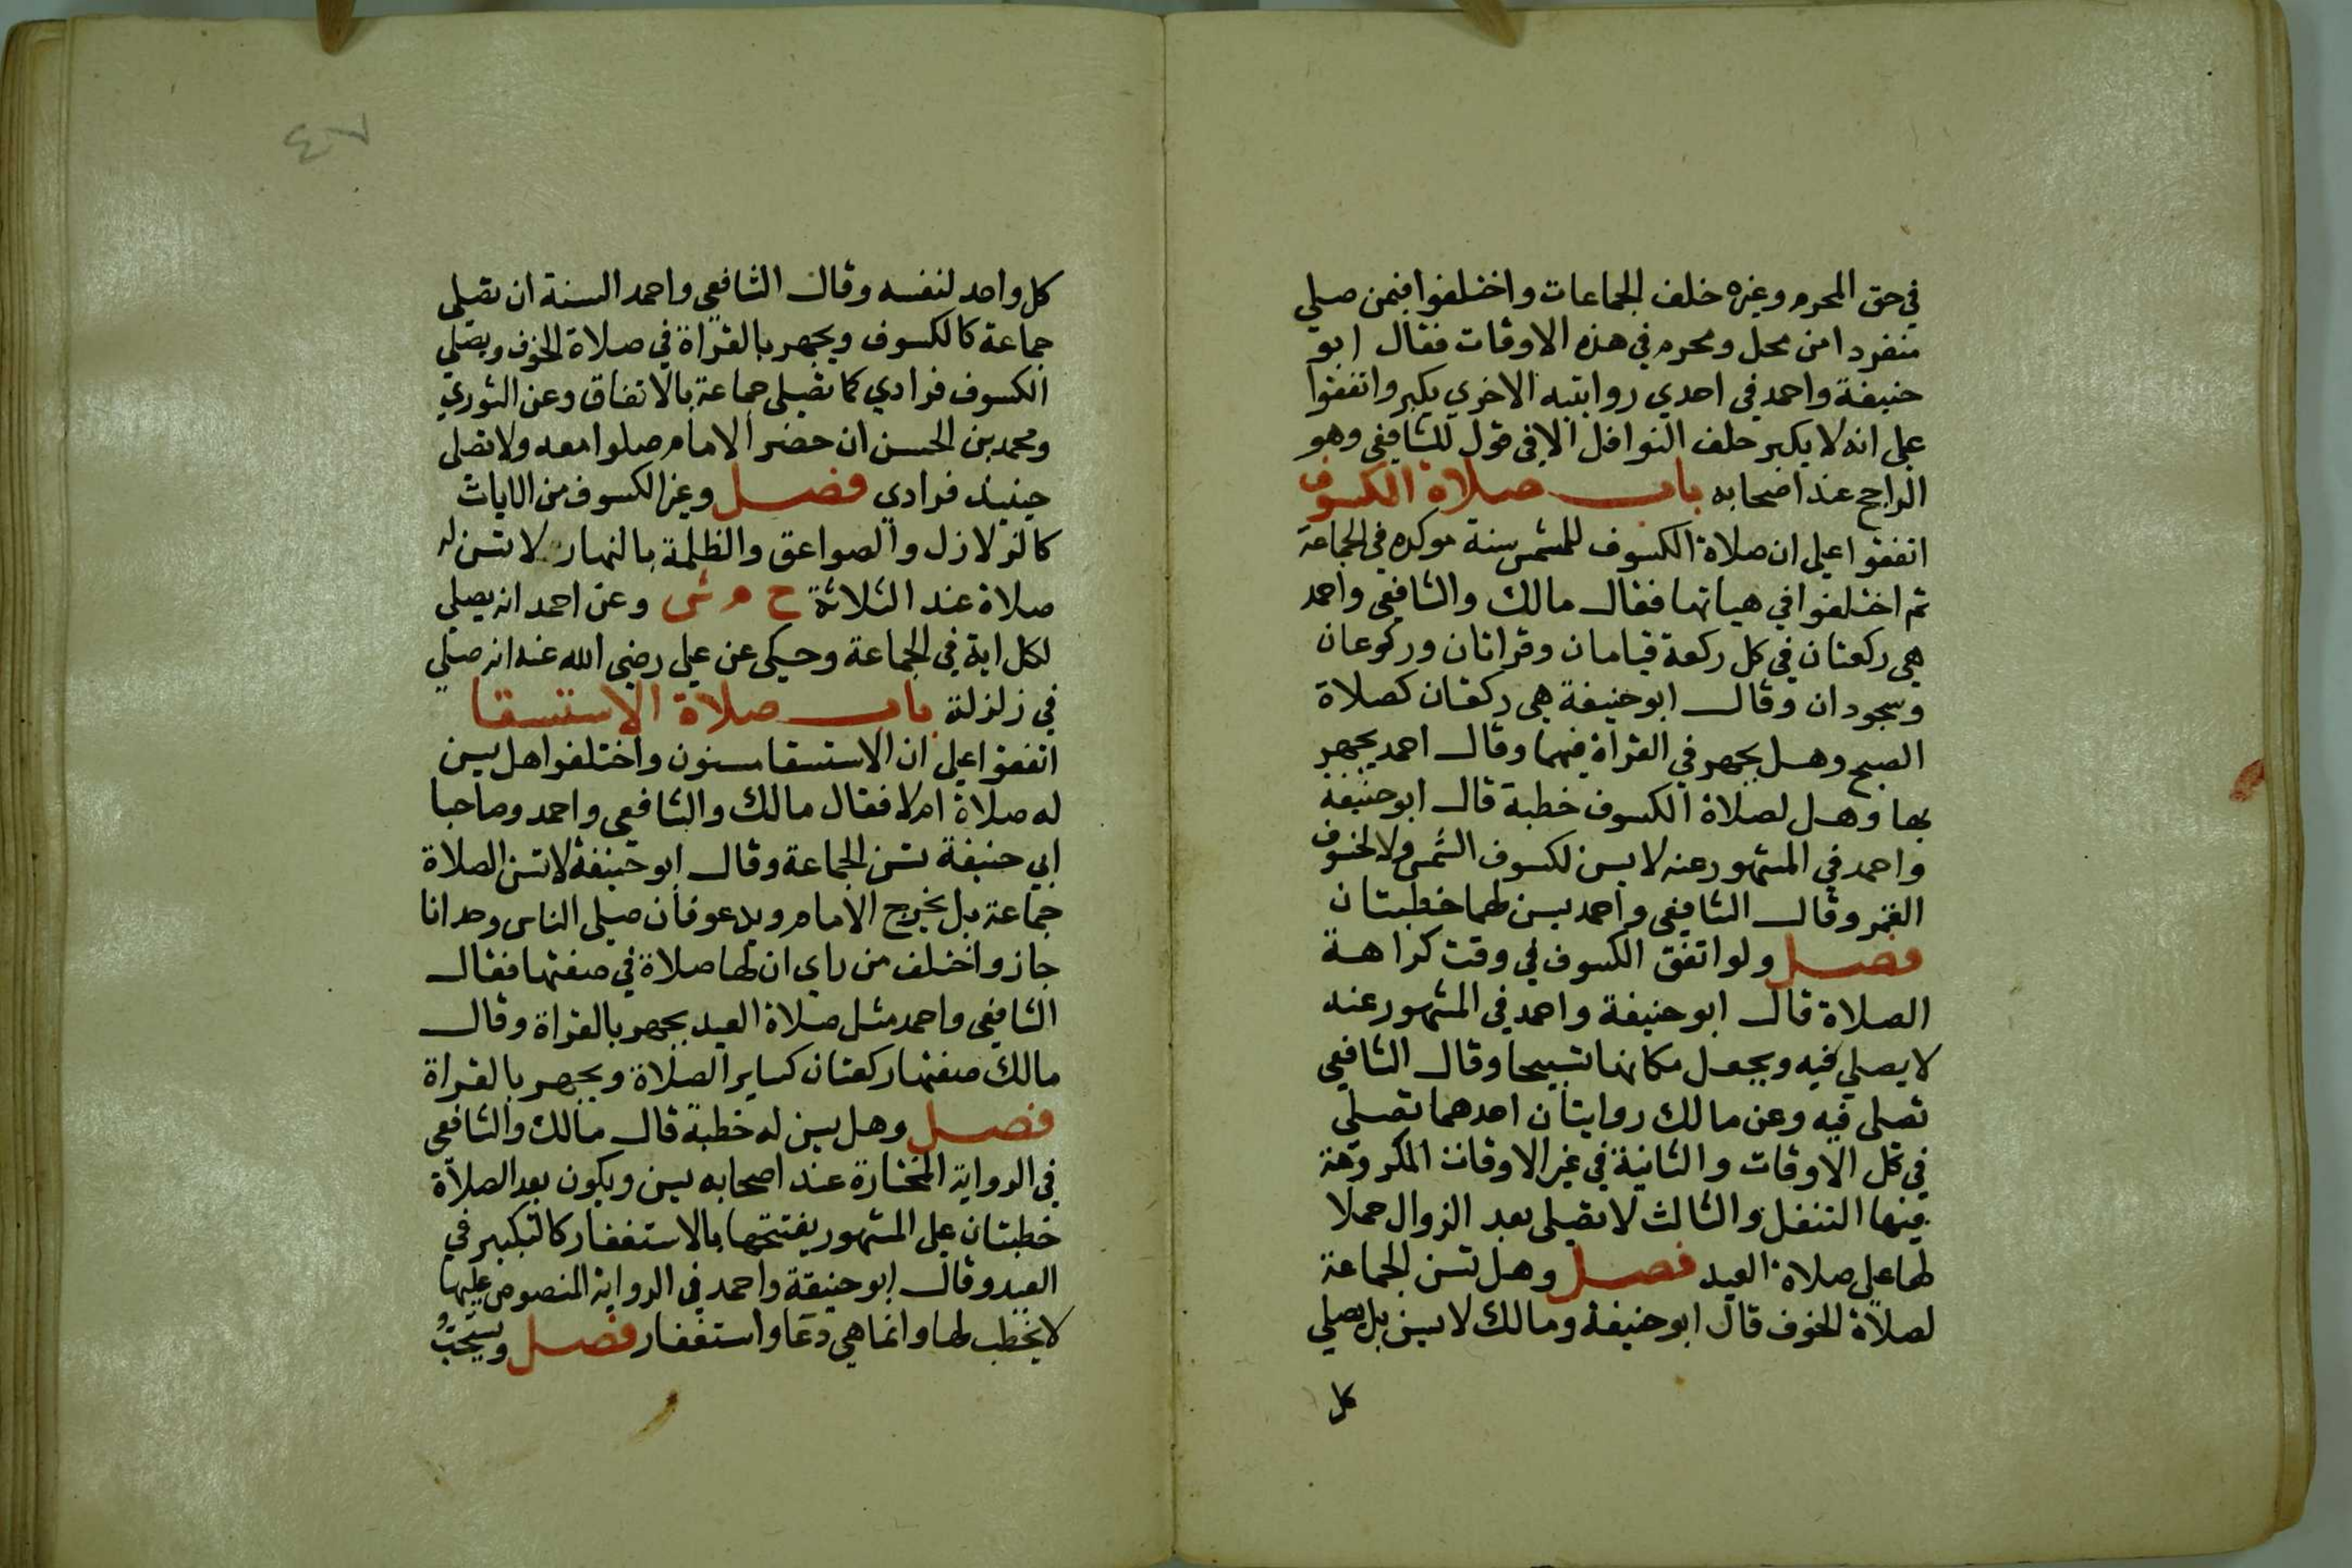 في حق المحرم وغيره خلف الجماعات واختلفوا فيمن صلي
منفردا من محل ومحرم في هذه الاوقات فقال ابو
حنيفة واحمد في احدي روايتيه الاخري يكبر واتفقوا
علي انه لا يكبر خلف النوافل الا في قول للشافعي وهو
الراجح عند اصحابه باب صلاة الكسوف
اتفقوا علي ان صلاة الكسوف للشمس سنة موكده في الجماعة
ثم اختلفوا في هياتها فقال مالك والشافعي واحمد
هي ركعتان في كل ركعة قيامان وقراتان وركوعان
وسجودان وقال ابو حنيفة هي ركعتان كصلاة
الصبح وهل يجهر في القراة فيهما وقال احمد يجهر
بها وهل لصلاة الكسوف خطبة قال ابو حنيفة
واحمد في المشهور عنه لا يسن لكسوف الشمس ولا لخسوف
القمر وقال الشافعي واحمد يسن لهما خطبتان
فصل ولو اتفق الكسوف في وقت كراهة
الصلاة قال ابو حنيفة واحمد في المشهور عنه
لا يصلي فيه ويجعل مكانها تسبيحا وقال الشافعي
تصلي فيه وعن مالك روايتان احدهما تصلي
في كل الاوقات والثانية في غير الاوقات المكروهة
فيها التنفل والثالث لا تصلي بعد الزوال حملا
لها علي صلاة العيد فصل وهل تسن الجماعة
لصلاة الخوف قال ابو حنيفة ومالك لا يسن بل يصلي
كل
٤٧
كل واحد لنفسه وقال الشافعي واحمد السنة ان تصلي
جماعة كالكسوف ويجهر بالقراة في صلاة الخوف ويصلي
الكسوف فرادي كما تصلي جماعة بالاتفاق وعن الثوري
ومحمد بن الحسن ان حضر الامام صلوا معه ولا تصلي
حينيذ فرادي فصل وغير الكسوف من الايات
كالزلازل والصواعق والظلمة بالنهار لا تسن له
صلاة عند الثلاثة ح م ش وعن احمد انه يصلي
لكل اية في الجماعة وحكي عن علي رضي الله عنه انه صلي
في زلزلة باب صلاة الاستسقا
اتفقوا علي ان الاستسقا مسنون واختلفوا هل يسن
له صلاة ام لا فقال مالك والشافعي واحمد وصاحبا
ابي حنيفة تسن الجماعة وقال ابو حنيفة لا تسن الصلاة
جماعة بل يخرج الامام ويدعو فان صلي الناس وحدانا
جاز واختلف من راي ان لها صلاة في صفتها فقال
الشافعي واحمد مثل صلاة العيد يجهر بالقراة وقال
مالك صفتها ركعتان كساير الصلاة ويجهر بالقراة
فصل وهل يسن له خطبة قال مالك والشافعي
في الرواية المختارة عند اصحابه يسن ويكون بعد الصلاة
خطبتان علي المشهور يفتتحها بالاستغفار كالتكبير في
العيد وقال ابو حنيفة واحمد في الرواية المنصوص عليها
لا يخطب لها وانما هي دعا واستغفار فصل ويستحب